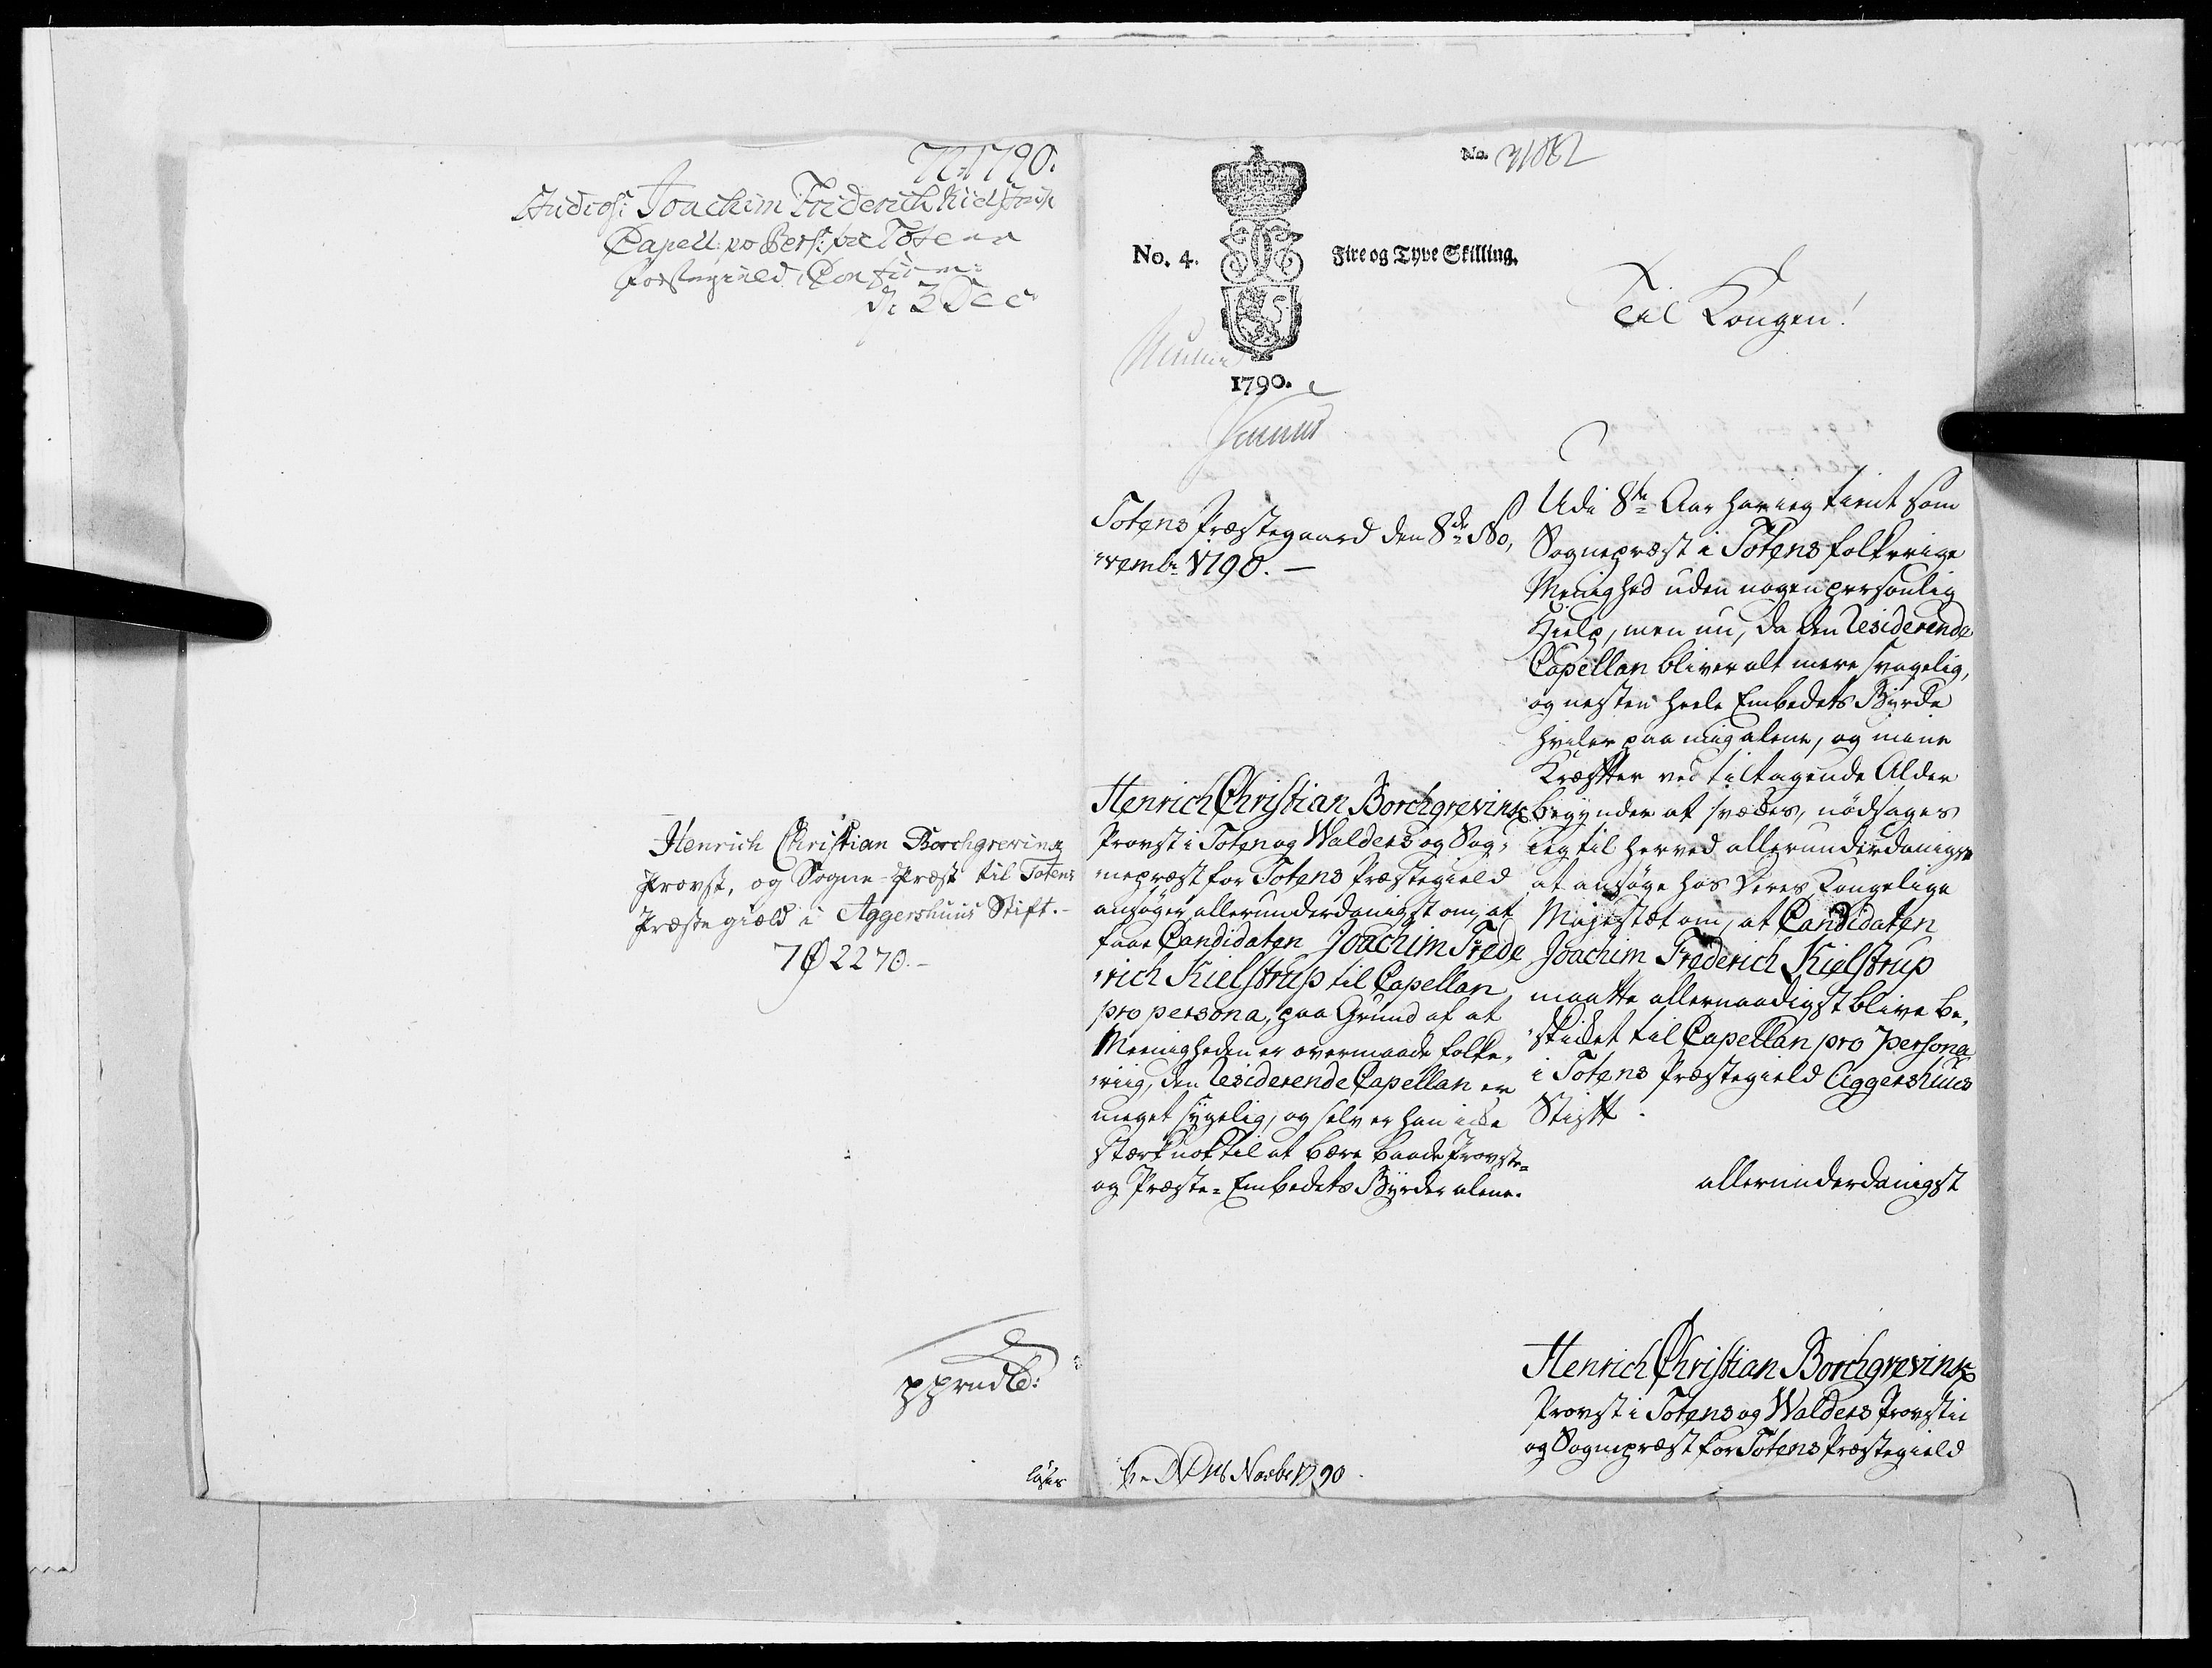 1790.
Studios: Joachim Friderich Kielstrup
Capell: pro Pers: for Totens
Præstegield, Confirm:
d: 3 Dec
Henrich Christian Borchgrevink
Provst, og Sogne-Præst til Totens
Præstegiæld i Aggershuus Stift.-
2270.-
No. 31082
No. 4.
Fire og Tyve Skilling.
1790.
Totens Præstegaard den 8de No,
,vembr 1790. -
Henrich Christian Borchgrevink
Provst i Toten og Walders og Sog,
,nepræst for Totens Præstegield
ansøger allerunderdanigst om, at
faae Candidaten Joachim Frede
,rich Kielstrup til Capellan
pro persona, paa Grund af at
Meenigheden er overmaade folke,
,riig, den residerende Capellan er
meget sygelig, og selv er han ikke
stærk nok til at bære baade Provste=
og Præste=Embedets Byrder alene.
Novbr 1790.
Til Kongen!
Udi 8te Aar har ieg tient som
Sognepræst i Totens folkerige
Menighed uden nogen personlig
Hielp, men nu, da den residerende
Capellan bliver alt mere svagelig,
og nesten heele Embedets Byrde
hviler paa mig alene, og mine
Kræfter ved tiltagende Alder
begynder at svækkes, nødsages
ieg til herved allerunderdanigst
at ansøge hos Deres Kongelige
Majestæt om, at Candidaten
Joachim Frederich Kielstrup
maatte allernaadigst blive be,
,skikket til Capellan pro persona
i Totens Præstegield Aggershuus
Stift.
allerunderdanigst
Henrich Christian Borchgrevink
Provst i Totens og Walders Provstie
og Sognepræst for Totens Præstegield